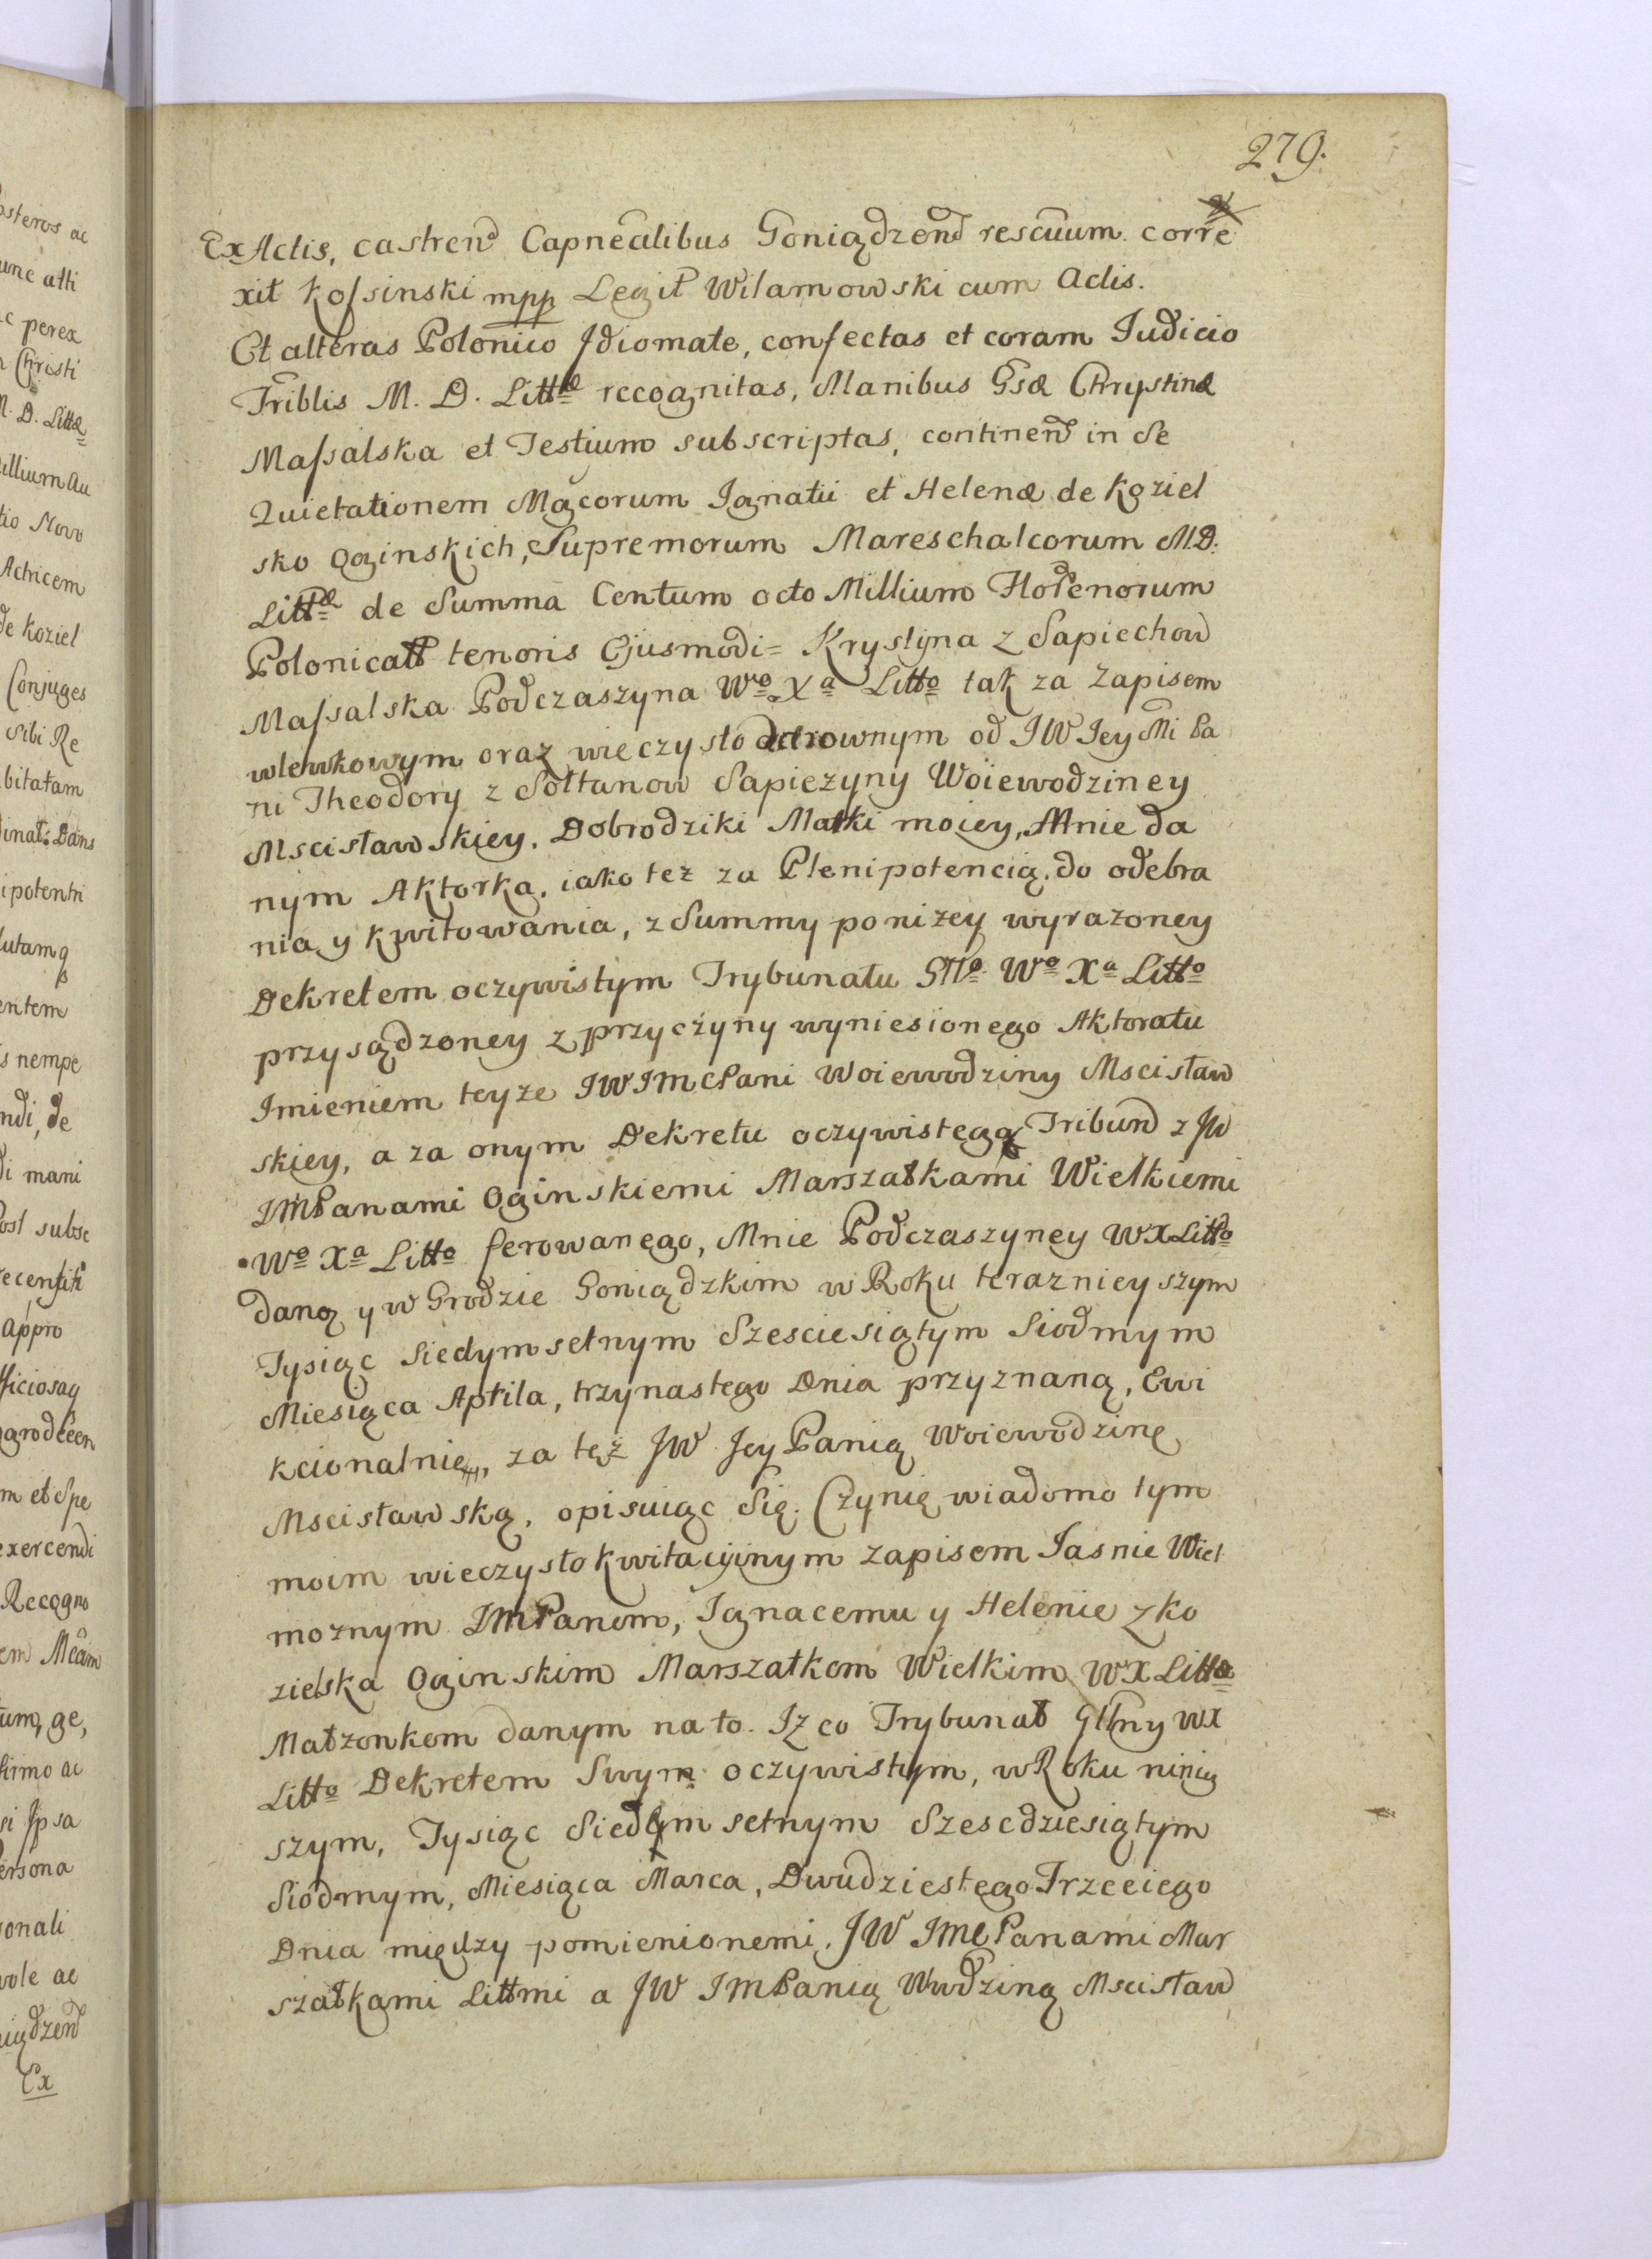 279.
Ex Actis, castren̄d Capnēalibus Goniądzen̄d rescūum. corre
xit Kossinski mpp Legit Wilamowski cum Actis.
Et alteras Polonico Jdiomate, confectas et coram Judicio
Triblis M. D. Littæ recognitas, Manibus Gsæ Chrystinæ
Massalska et Testium subscriptas, continen̄d in Se
Quietationem Mgcorum Ignatii et Helenæ de Koziel
sko Oginskich, Supremorum Mareschalcorum M.D.
Littæ de Summa Centum octo Millium Florenorum
Polonicalł tenoris Ejusmodi = Krystyna z Sapiechow
Massalska Podczaszyna Wo Xa Litto tak za Zapisem
wlewkowym oraz wieczysto darownym od JW Jey Mi Pa
ni Theodory z Sołtanow Sapieżyny Woiewodziney
Mscisławskiey. Dobrodziki Matki moiey, Mnie da
nym Aktorką, iako też za Plenipotencią, do odebra
nia y kwitowania, z Summy poniżey wyrażoney
Dekretem oczywistym Trybunału Głło Wo Xa Litto
przysądzoney z przyczyny wyniesionego Aktoratu
Imieniem teyże JWJMcPani Woiewodziny Mscisław
skiey, a za onym Dekretu oczywistego Tribun̄d z JW
IMPanami Oginskiemi Marszałkami Wielkiemi
Wo Xa Litto ferowanego, Mnie Podczaszyney WXLitto
daną y w Grodzie Goniądzkim w Roku terazniey szym
Tysiąc Siedymsetnym Szesciesiątym Siodmym
Miesiąca Aprila, trzynastego Dnia przyznaną, Ewi
kcionalnie, za tęż JW Jey Panią Woiewodzinę
Mscisławską, opisuiąc Się. Czynię wiadomo tym
moim wieczysto kwitacyinym zapisem Jasnie Wiel
możnym IMPanom, Ignacemu y Helenie z Ko
zielska Oginskim Marszałkom Wielkim WX Litto
Małżonkom danym na to. Iż co Trybunał Głłny WX
Litto Dekretem Swym oczywistym, w Roku niniy
szym, Tysiąc Siedymsetnym Szescdziesiątym
Siodmym, Miesiąca Marca, Dwudziestego Trzeciego
Dnia między pomienionemi, JW IMC Panami Mar
szałkami Littmi a JW IMPanią Wwdziną Mscisław